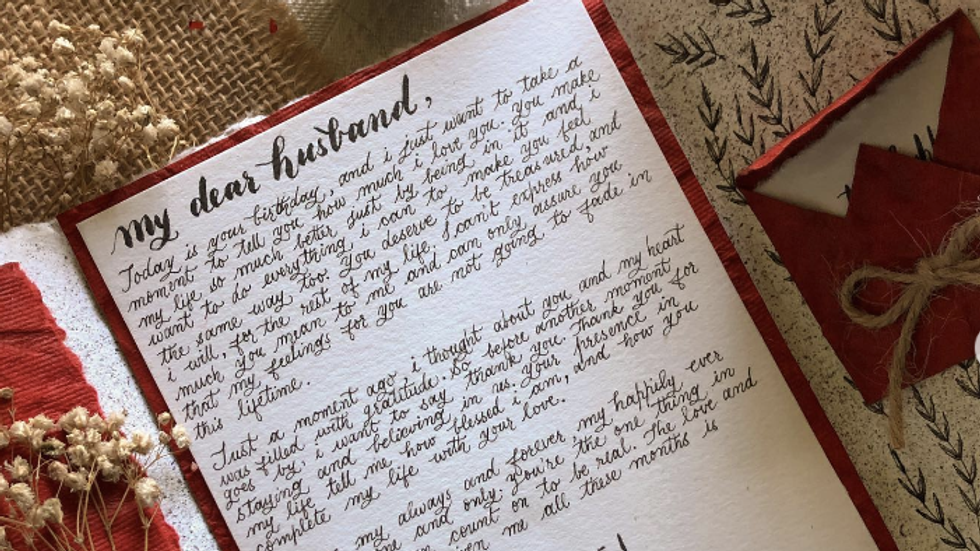 my dear husband,
Today is your birthday, and i just want to take a
moment to tell you how much i love you. You make
my life so much better just by being in it and i
want to do everything i can to make you feel
the same way too. You deserve to be treasured, and
i will, for the rest of my life. I can't express how
much you mean to me and can only assure you
that my feelings for you are not going to fade in
this lifetime.
Just a moment ago, i thought about you and my heart
was filled with gratitude. So before another moment
goes by, i want to say thank you. Thank you for
staying and believing in us. Your presence in
my life tell me how blessed i am, and how you
complete my life with your love.
my always and forever, my happily ever
and only. You're the one thing in
count on to be real. The love and
me all these months is